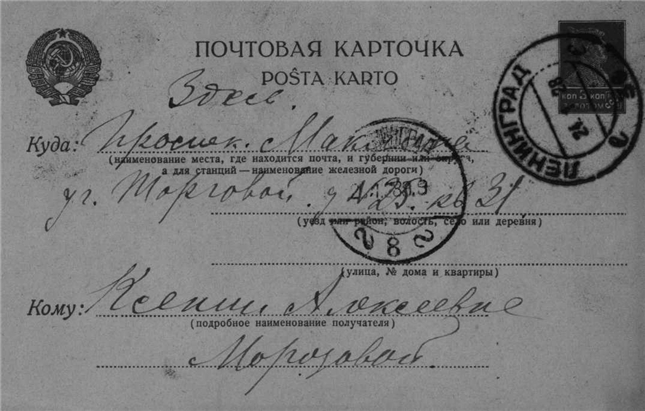 ПОЧТОВАЯ КАРТОЧКА
POŜTA KARTO
Здесь.
Куда: Проспек. Маклина
(наименование места, где находится почта, и губернии или округа,
а для станций — наименование железной дороги)
уг. Торговой. д № 23. кв 31
(уезд или район, волость, село или деревня)
(улица, № дома и квартиры)
Кому: Ксении Алексеевне
(подробное наименование получателя)
Морозовой.
ЛЕНИНГРАД
ЛЕНИНГРАД
8